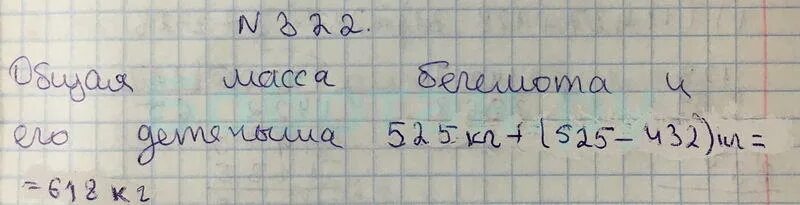 N 322.
Общая масса бегемота и
его детеныша 525 кг + (525 - 432) кг =
= 618 кг